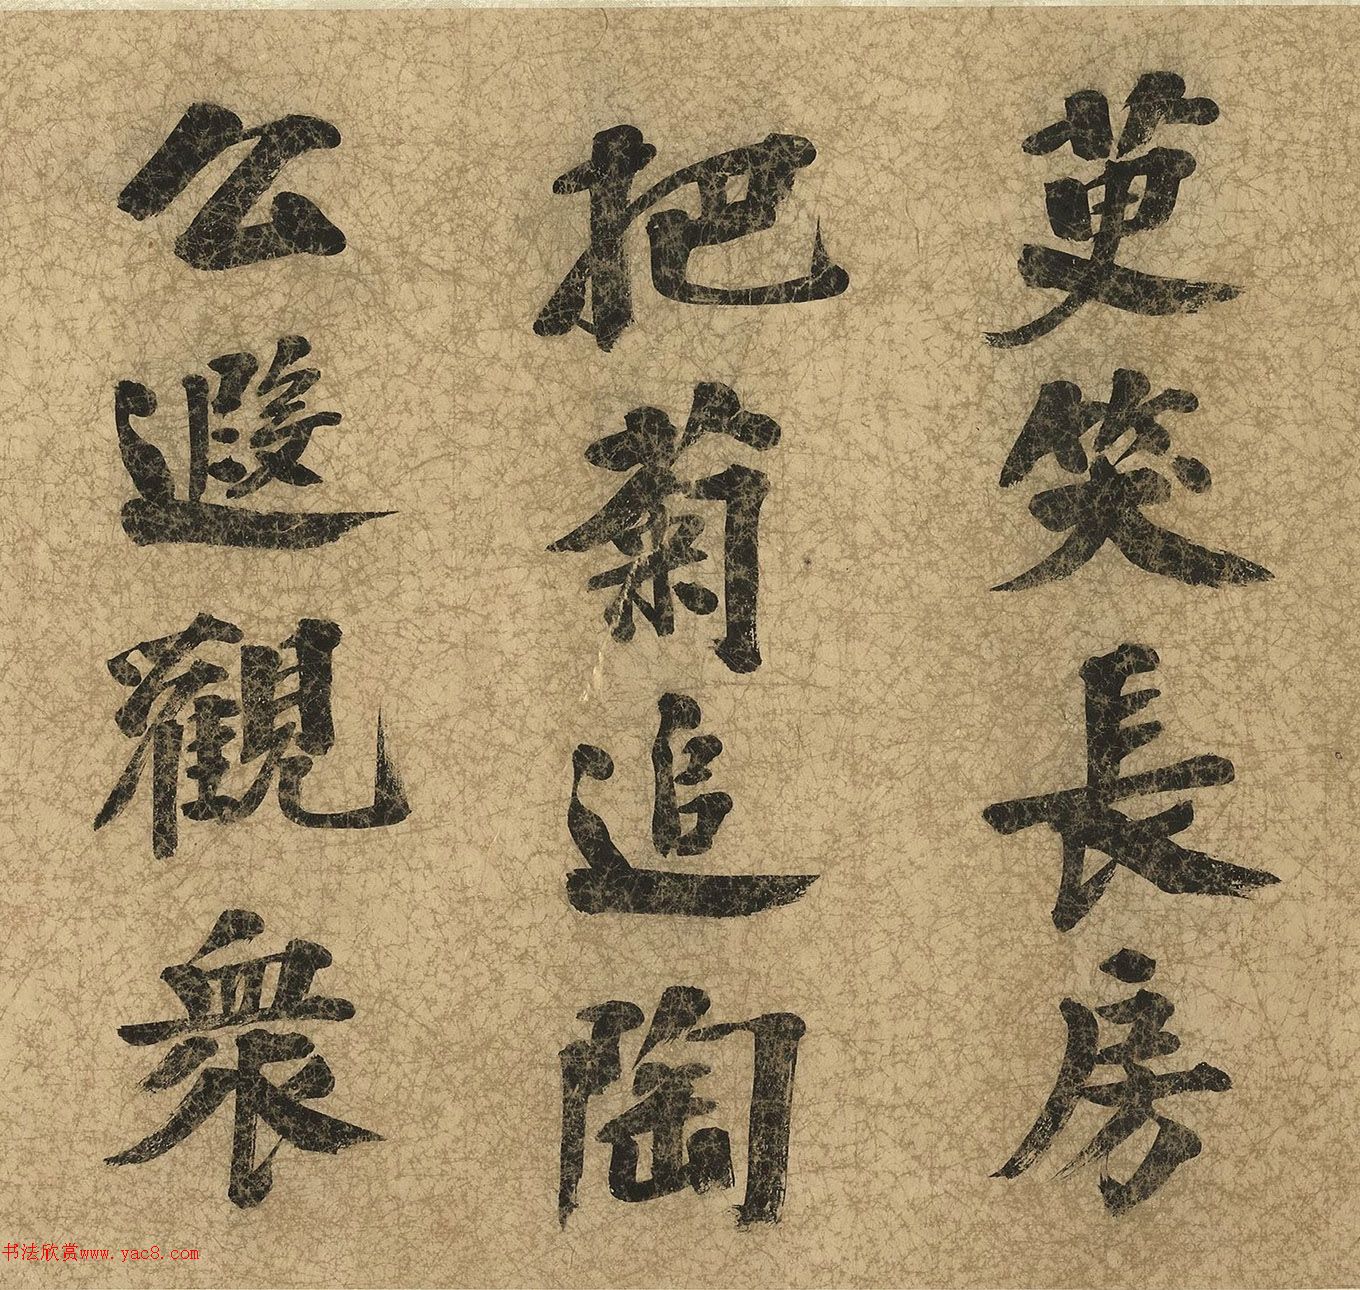 萸笑長房
把菊追陶
公遐觀衆
书法欣赏www.yac8.com